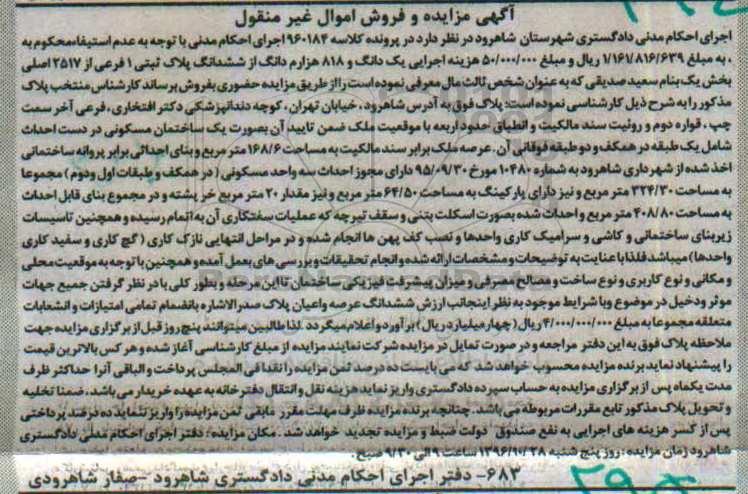 آگهی مزایده و فروش اموال غیر منقول
اجرای احکام مدنی دادگستری شهرستان شاهرود در نظر دارد در پرونده کلاسه ۹۶۰۱۸۴ اجرای احکام مدنی با توجه به عدم استیفاء محکوم به
، به مبلغ ۱/۱۶۱/۸۱۶/۶۳۹ ریال و مبلغ ۵۰/۰۰۰/۰۰۰ هزینه اجرایی یک دانگ و ۸۱۸ هزارم دانگ از ششدانگ پلاک ثبتی ۱ فرعی از ۲۵۱۷ اصلی
بخش یک بنام سعید صدیقی که به عنوان شخص ثالث مال معرفی نموده است را از طریق مزایده حضوری بفروش برساند کارشناس منتخب پلاک
مذکور را به شرح ذیل کارشناسی نموده است: پلاک فوق به آدرس شاهرود ، خیابان تهران ، کوچه دندانپزشکی دکتر افتخاری ، فرعی آخر سمت
چپ ، قواره دوم و رویت سند مالکیت و انطباق حدود اربعه با موقعیت ملک ضمن تایید آن بصورت یک ساختمان مسکونی در دست احداث
شامل یک طبقه در همکف و دو طبقه فوقانی آن . عرصه ملک برابر سند مالکیت به مساحت ۱۶۸/۶ متر مربع و بنای احداثی برابر پروانه ساختمانی
اخذ شده از شهرداری شاهرود به شماره ۱۰۴۸۰ مورخ ۹۵/۰۹/۳۰ دارای مجوز احداث سه واحد مسکونی ( در همکف و طبقات اول و دوم ) مجموعا
به مساحت ۳۲۴/۳۰ متر مربع و نیز دارای پارکینگ به مساحت ۶۴/۵۰ متر مربع و نیز مقدار ۲۰ متر مربع خر پشته و در مجموع بنای قابل احداث
به مساحت ۴۰۸/۸۰ متر مربع و احداث شده بصورت اسکلت بتنی و سقف تیرچه که عملیات سفتکاری آن به اتمام رسیده و همچنین تاسیسات
زیربنای ساختمانی و کاشی و سرامیک کاری واحدها و نصب کف پهن ها انجام شده و در مراحل انتهایی نازک کاری ( گچ کاری و سفید کاری
واحدها ) میباشد فلذا با عنایت به توضیحات و مشخصات ارائه شده و انجام تحقیقات و بررسی های بعمل آمده و همچنین با توجه به موقعیت محلی
و مکانی و نوع کاربری و نوع ساخت و مصالح مصرفی و میزان پیشرفت فیزیکی ساختمان تا این مرحله و بطور کلی با در نظر گرفتن جمیع جهات
موثر و دخیل در موضوع وبا شرایط موجود به نظر اینجانب ارزش ششدانگ عرصه واعیان پلاک صدرالاشاره بانضمام تمامی امتیازات و انشعابات
متعلقه مجموعا به مبلغ ۴/۰۰۰/۰۰۰/۰۰۰ ریال ( چهار میلیارد ریال ) برآورد و اعلام میگردد .لذا طالبین میتوانند پنج روز قبل از برگزاری مزایده جهت
ملاحظه پلاک فوق به این دفتر مراجعه و در صورت تمایل در مزایده شرکت نمایند مزایده از مبلغ کارشناسی آغاز شده و هر کس بالاترین قیمت
را پیشنهاد نماید برنده مزایده محسوب خواهد شد که می بایست ده درصد ثمن مزایده را نقدا فی المجلس پرداخت و الباقی آنرا حداکثر ظرف
مدت یکماه پس از برگزاری مزایده به حساب سپرده دادگستری واریز نماید هزینه نقل و انتقال دفتر خانه به عهده خریدار می باشد . ضمنا تخلیه
و تحویل پلاک مذکور تابع مقررات مربوطه می باشد . چنانچه برنده مزایده ظرف مهلت مقرر مابقی ثمن مزایده را واریز ننماید ده درصد پرداختی
پس از کسر هزینه های اجرایی به نفع صندوق دولت ضبط و مزایده تجدید خواهد شد . مکان مزایده: دفتر اجرای احکام مدنی دادگستری
شاهرود زمان مزایده : روز پنج شنبه ۱۳۹۶/۱۰/۲۸ ساعت ۹ الی ۹/۳۰ صبح .
۶۸۳- دفتر اجرای احکام مدنی دادگستری شاهرود -صفار شاهرودی